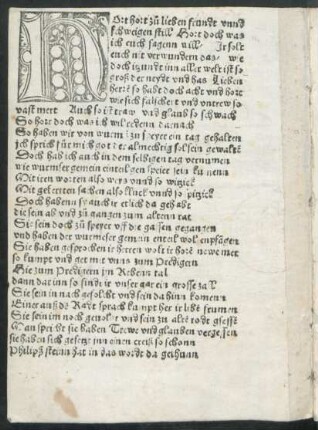 Hört zů lieben freundt vnnd
schweigen still Hort doch was
ich euch sagenn will Jr solt
euch nit verwundern das we
doch itzundt inn aller welt ist so
groß der neydt vnd has Lieben
herrē so habt doch acht vnd hört
wie sich falscheit vnd vntrew so
vast mert Auch so ist traw vnd glaub so schwach
So hört doch was ich wil redenn darnach
So haben wir von wurms zů speyer ein tag gehalten
ich sprich für mich got der almechtig sol sein gewaltē
Doch hab ich auch in dem selbigen tag vernumen
wie wurmser gemein ein teil gen speier sein kumenn
Mit iren worten also wers vnnd so witzick
Mit gelerten sachen also kluck vnnd so spitzick
Doch habenn sy auch ir etlich da gehabt
die sein ab vnd zů gangen zum altenn rat
Sie sein doch zů speyer vff die gassen gegangen
vnd haben der wurmeser gemein ein teil wol enpfangen
Sie haben gesprochen ir herren wolt ir hörē newe mer
so kumpt vnd get mit vnns zum Predigern
Hie zum Predigern im Rebenn tal
dann dar inn so findt ir vnser gar ein grosse zal
Sie sein in nach gefolget vnd sein da hinn komenn
Einer auß dē Radt sprach kumpt her ir liebē freumen
Sie sein im noch gevolget vnd sein zů altē rodt gsessē
Man spricht sie haben Trewe vnd glauben vergessen
sie haben sich gesetzt inn einen creiß so schonn
Philips steinn hat in das wordt da gethunn